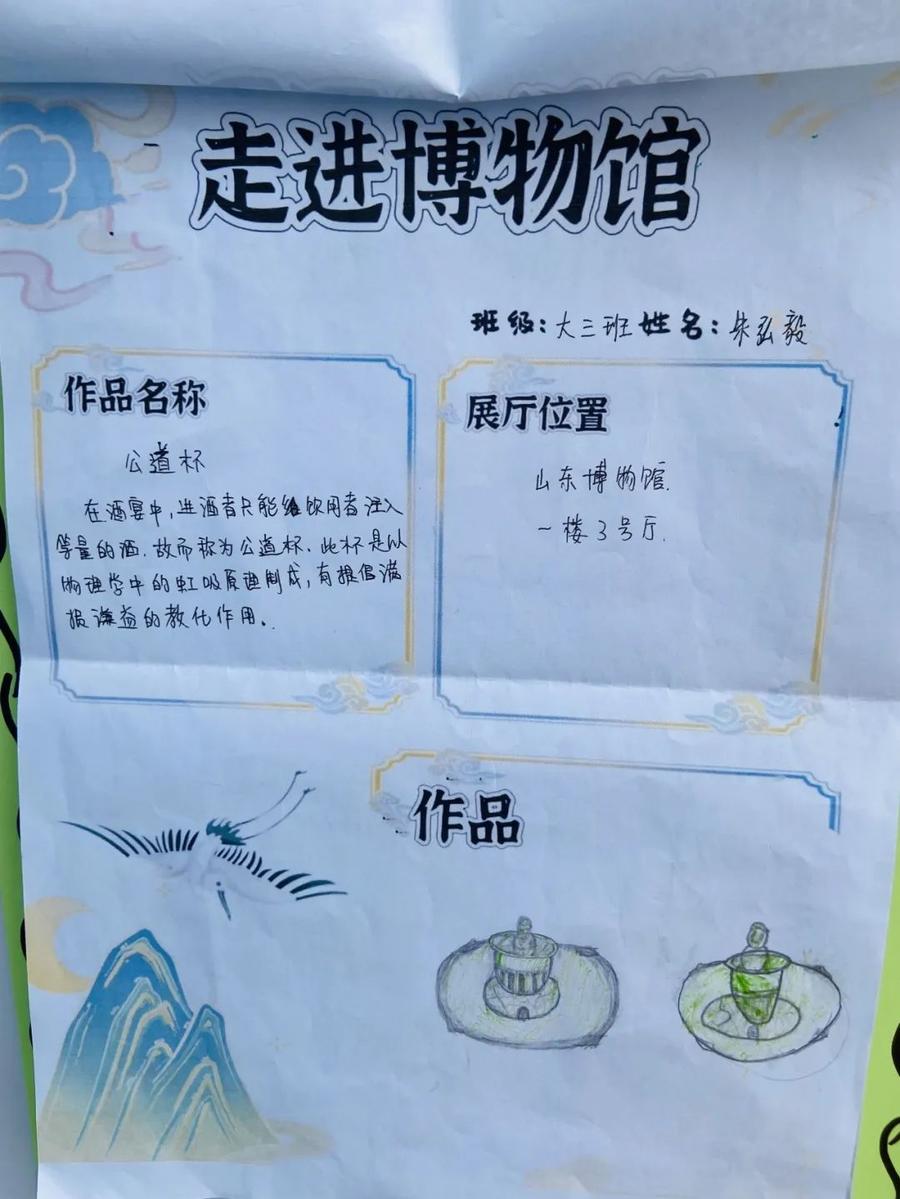 走进博物馆
班级:大三班 姓名:朱弘毅
作品名称
公道杯
在酒宴中,进酒者只能给饮用者注入
等量的酒.故而称为公道杯.此杯是以
物理学中的虹吸原理制成,有提倡满
损谦益的教化作用.
展厅位置
山东博物馆.
一楼3号厅.
作品